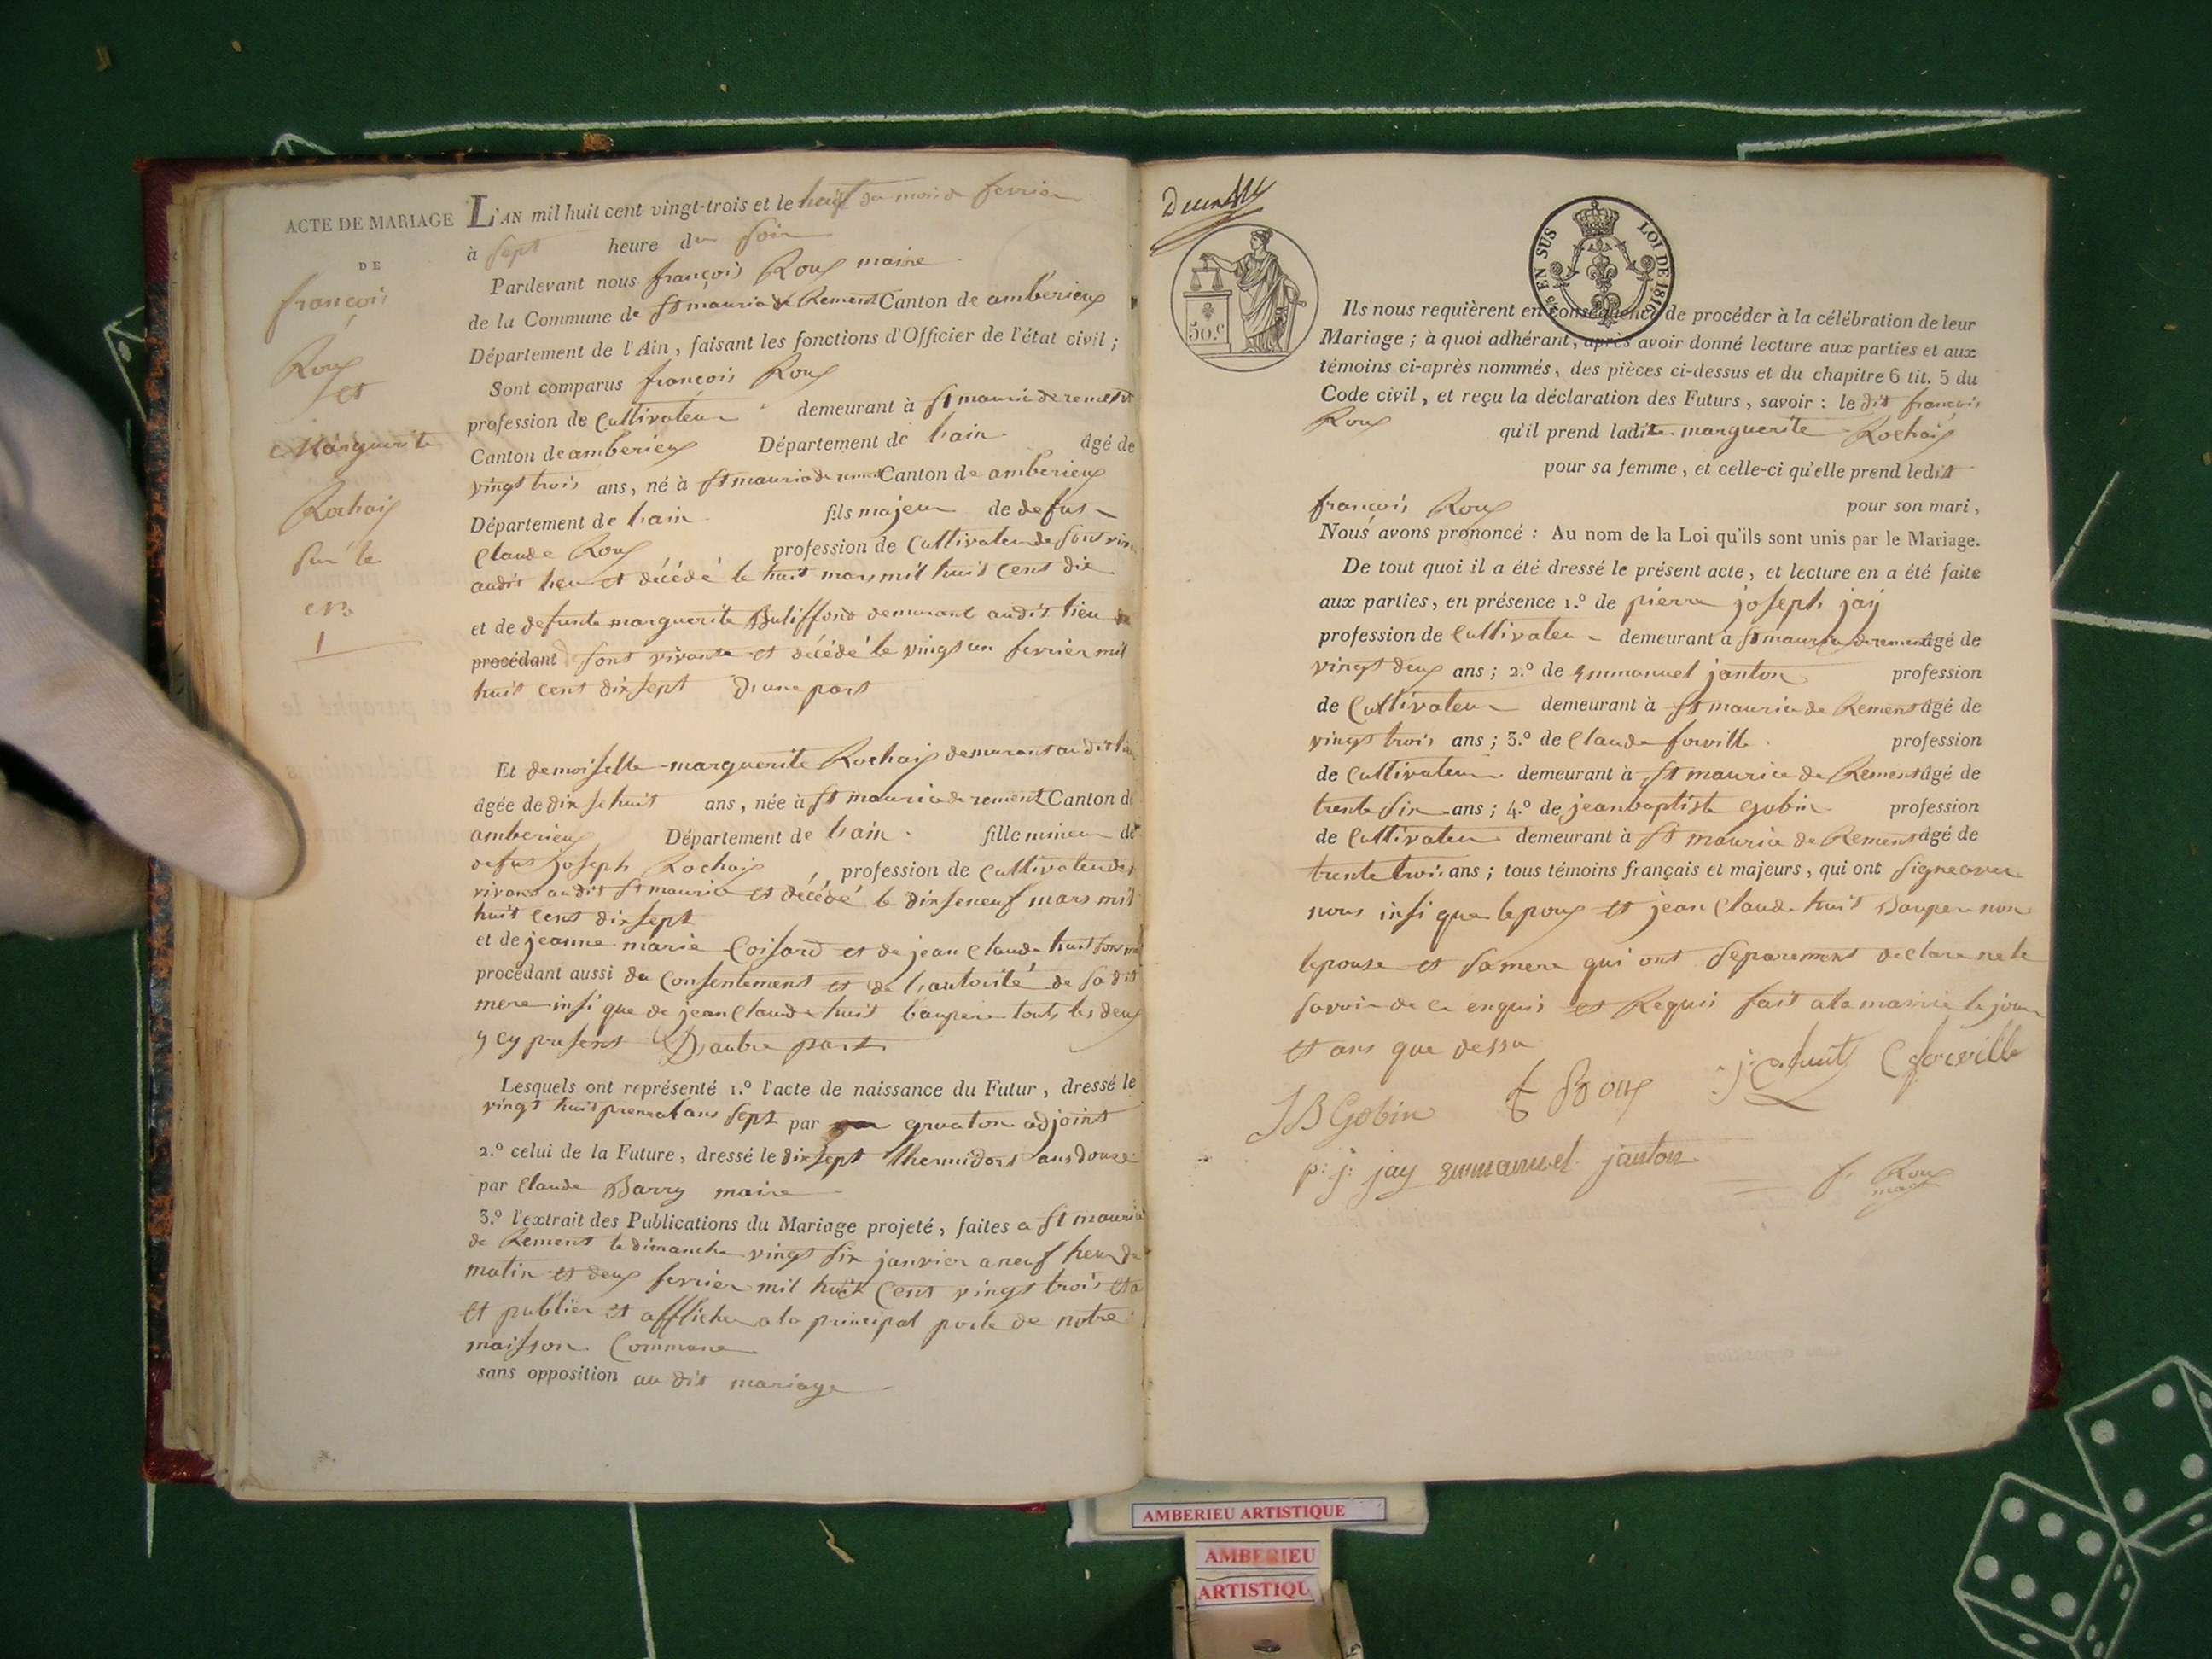 ACTE DE MARIAGE
DE
françois
Roux
et
Marguerite
Rochaix
sur le
No
1
L'AN mil huit cent vingt-trois et le huit du mois de fevrier
à sept heure du soir
Pardevant nous françois Roux maire
de la Commune de St mauria de Rement Canton de amberieux
Département de l'Ain, faisant les fonctions d'Officier de l'état civil;
Sont comparus françois Roux
profession de Cultivateur demeurant à St mauria de rement
Canton de amberieux Département de lain âgé de
vingt trois ans, né à St mauria de rement Canton de amberieux
Département de lain fils majeur de defut
Claude Roux profession de Cultivateur de sont
audit lieu et décédé le huit mars mil huit cent dix
et de defunte marguerite Buliffond demeurant audit lieu
procédant sont vivante et décédé le vingt un fevrier mil
huit cent dix sept D'une part
Et demoiselle marguerite Rochaix demeurant audit
âgée de dix se huit ans, née à St mauria de rement Canton de
amberieux Département de lain fille mineur de
defut Joseph Rochaix, profession de Cultivateur de
vivant audit St mauria et décédé le dix seneuf mars mil
huit cent dix sept
et de jeanne marie Coisard et de jean Claude huit
procédant aussi du Consentement et de lautorité de sa dit
mere insi que de jean Claude huit baupere touts les deux
y cy presens D'autre part
Lesquels ont représenté 1.º l'acte de naissance du Futur, dressé le
vingt huit preneal ans sept par gruaton adjoint
2.º celui de la Future, dressé le dix sept thermidort ans douze
par Claude Barry maire
3.º l'extrait des Publications du Mariage projeté, faites a St mauria
de Rement le dimanche vingt six janvier a neuf heur du
matin et deux fevrier mil huit Cent vingt trois
et publier et afflicher a la principal porte de notre
maisson Commune
sans opposition au dit mariage
50.c
25 EN SUS
LOI DE 1816
Ils nous requièrent en conséquence de procéder à la célébration de leur
Mariage; à quoi adhérant, après avoir donné lecture aux parties et aux
témoins ci-après nommés, des pièces ci-dessus et du chapitre 6 tit. 5 du
Code civil, et reçu la déclaration des Futurs, savoir: le dit françois
Roux qu'il prend ladite marguerite Rochaix
pour sa femme, et celle-ci qu'elle prend ledit
françois Roux pour son mari,
Nous avons prononcé: Au nom de la Loi qu'ils sont unis par le Mariage.
De tout quoi il a été dressé le présent acte, et lecture en a été faite
aux parties, en présence 1.º de pierre joseph jay
profession de Cultivateur demeurant à St mauria de rement âgé de
vingt deux ans; 2.º de Emmanuel janton profession
de Cultivateur demeurant à St mauria de Rement âgé de
vingt trois ans; 3.º de Claude forville profession
de Cultivateur demeurant à St mauria de Rement âgé de
trente six ans; 4.º de jean baptiste gobin profession
de Cultivateur demeurant à St mauria de Rement âgé de
trente trois ans; tous témoins français et majeurs, qui ont signe avec
nous insi que lepoux et jean Claude huit baupere non
lepouse et sa mere qui ont separement declare ne le
savoir de ce enquis et Requis fait a la mairie le jour
et ans que dessu
JB Gobin f Roux j c huit C forville
p: j: jay emmanuel janton f Roux
maire
AMBERIEU ARTISTIQUE
AMBERIEU
ARTISTIQU